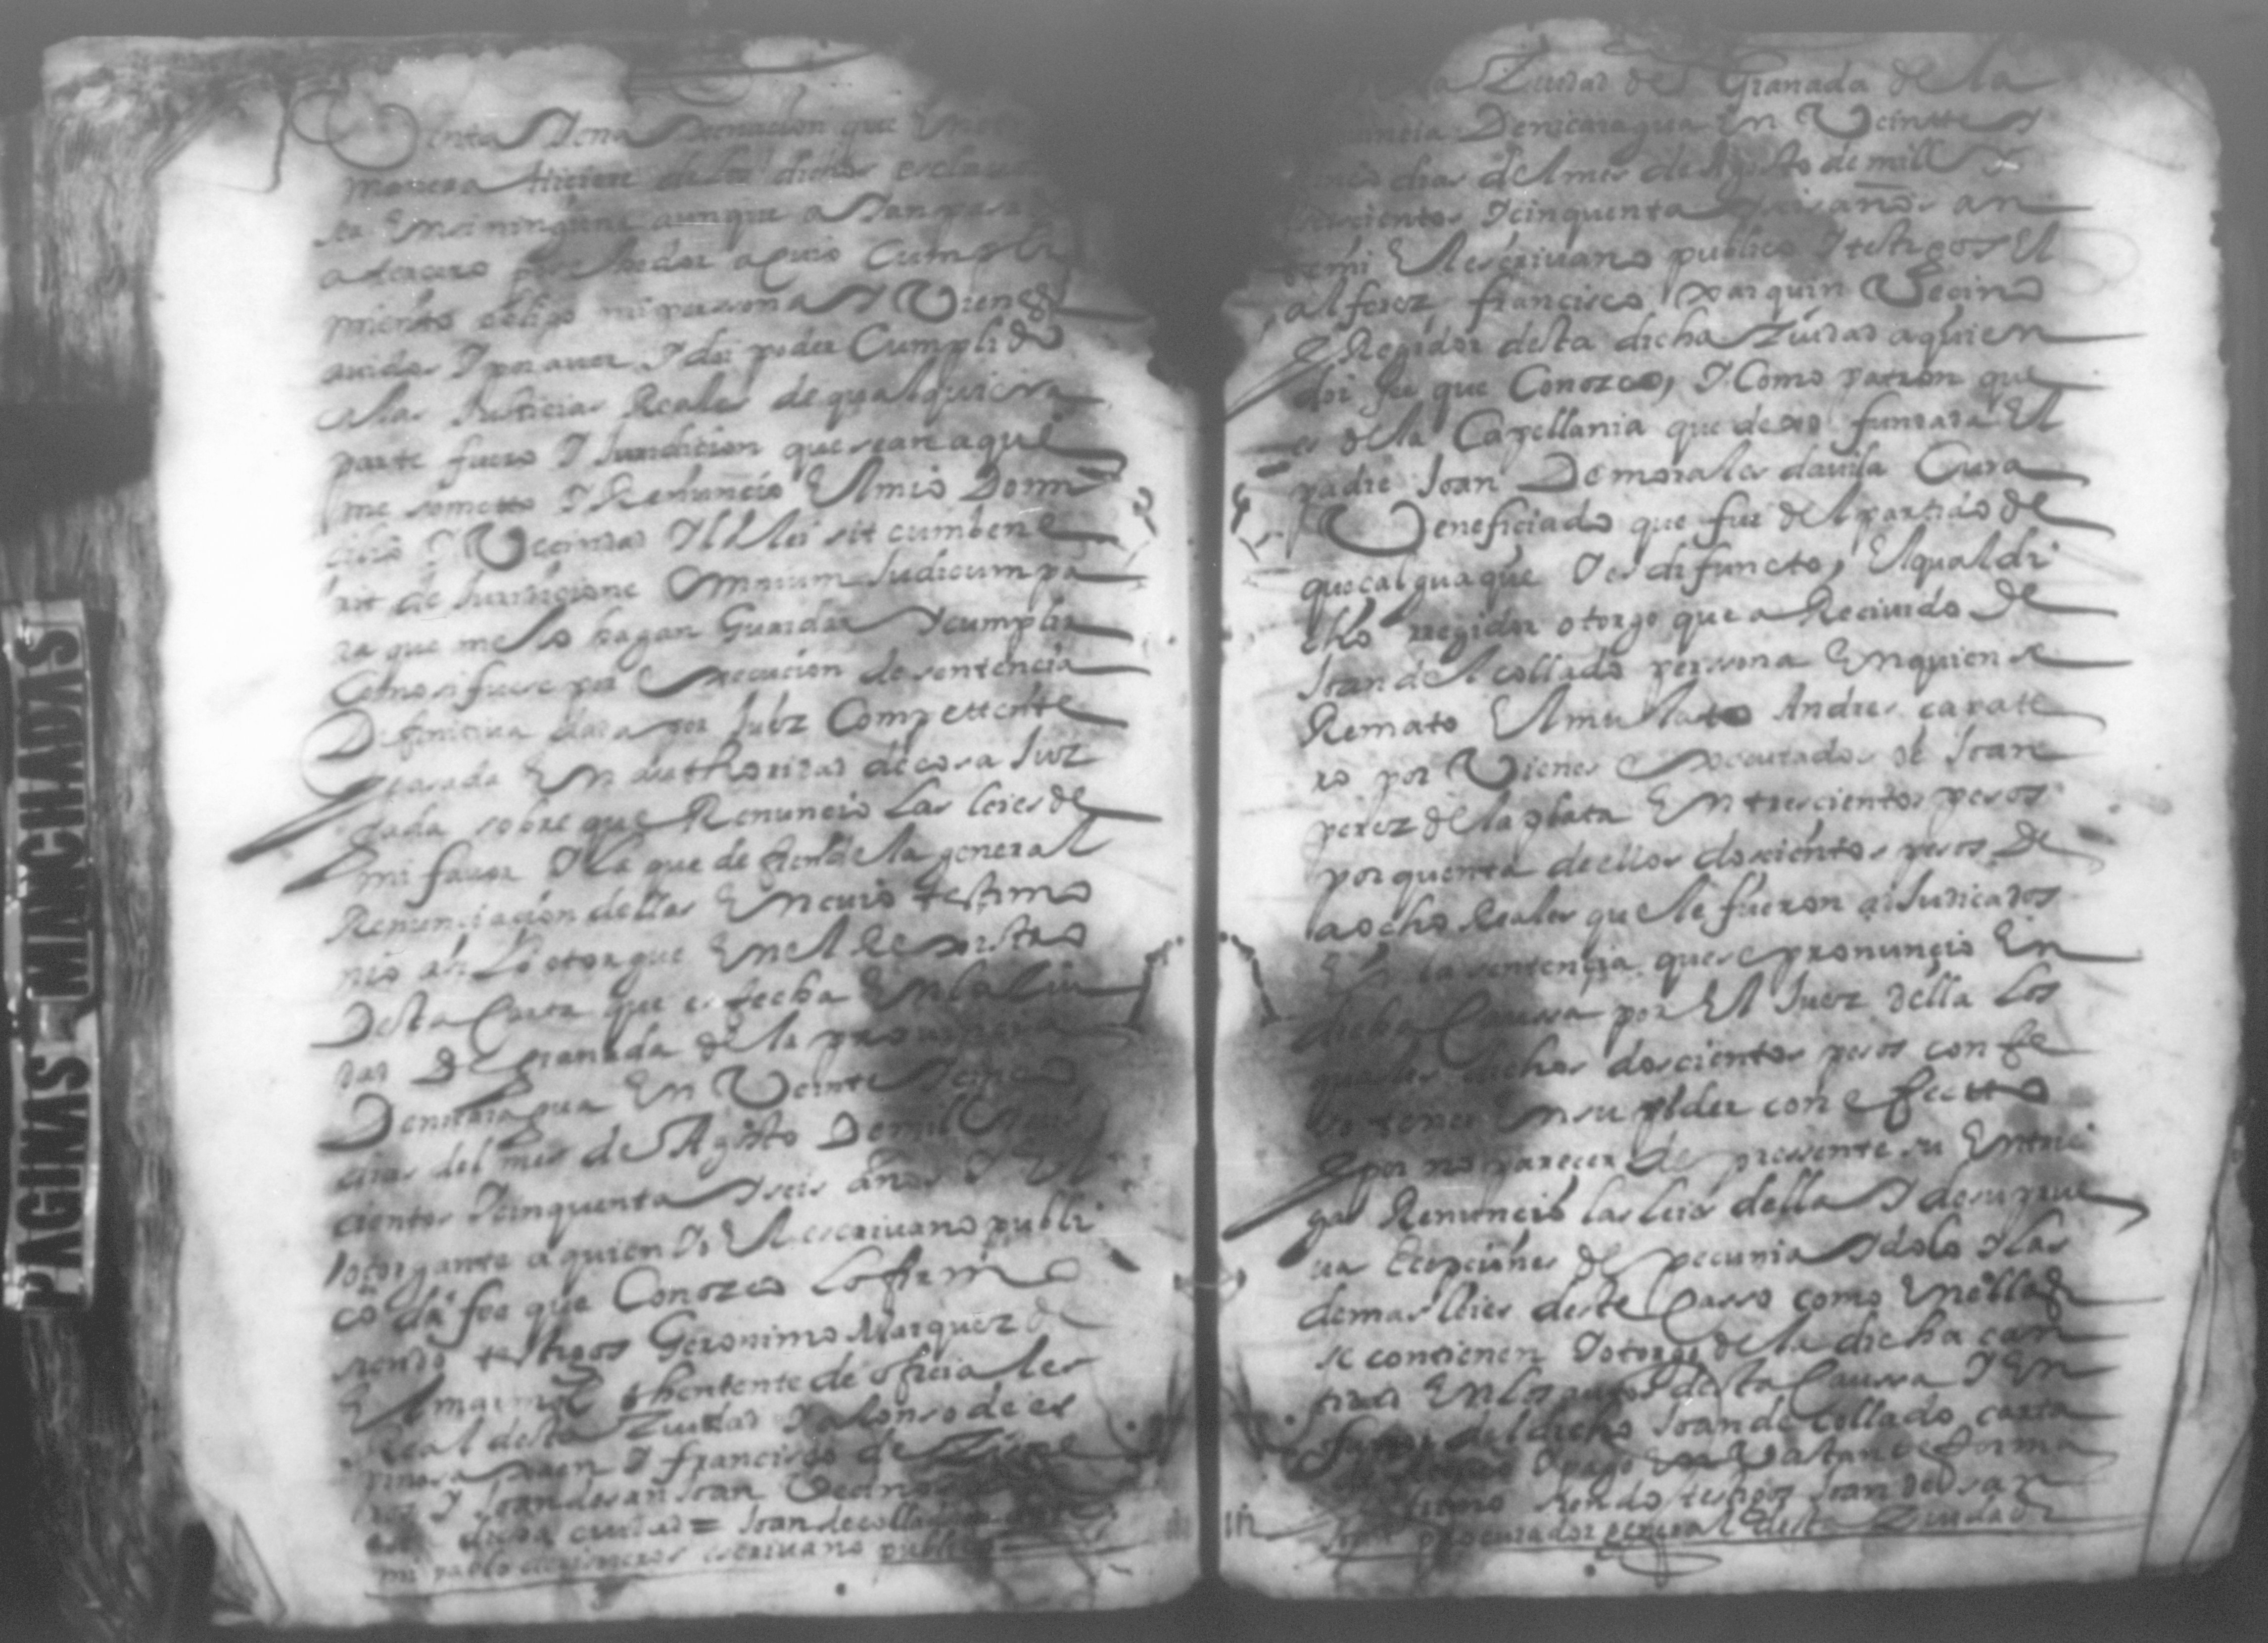 PAGINAS MANCHADAS
Venta Y ena Xenacion que
manera hiciere de los dichos esclauos
sea En si ninguna aunque a Ian pasado
a tercero posehedor a cuio Cumpli
miento obligo mi perssona Y Vienes
auidos Y por auer Y doi poder Cumplido
a las Justicias Reales de qualquiera
parte fuero Y Jurisdicion que sean a que
me sometto Y Renuncio El mio Domi
cilio Y Vecindad Y la lei sit cumbene
rit de Jurisdicione Omnium Judicum pa
ra que me lo hagan Guardar Y cumplir
Como si fuese por Execucion de sentencia
Definitiva dada por Juez Compettente
pasada En authoridad de cosa Juz
gada sobre que Renuncio las leies de
mi fauor Y la que defiende la general
Renunciacion dellas En cuio testimo
nio asi Lo otorgue En el Rexistro
Desta Carta que es fecha En la Ciu
dad De granada de la provincia
De nicaragua En Veinte Y cinco
dias del mes de Agosto De mill Y seis
cientos Y cinquenta Y seis años Y El
otorgante a quien Yo El escriuano publi
co doi fee que Conozco Lo firmo
siendo testigos Geronimo Marquez de
El marmol thentente de oficiales
Real desta Ziudad Y alonso de es
pinosa Y francisco de
Y Joan de san Joan Vecinos
dicha ciudad = Joan de collado
mi pablo escriuano publico
la Ziudad de Granada de la
De nicaragua En Veintte Y
cinco dias del mes de Agosto de mill Y
seiscientos Y cinquenta Y seis años an
te mi El escriuano publico Y testigos El
alferez francisco Xarquin Vecino
Y Regidor desta dicha Ziudad a quien
doi fee que Conozco, Y Como patron que
es de la Capellania que dexo fundada El
padre Joan De morales dauila Cura
Veneficiado que fue del partido de
quecalguaque Y es difuncto, El qual di
cho rregidor otorgo que a Reciuido de
Joan del collado perssona En quien se
Remato El mulato Andres carate
ro por Vienes Executados de Joan
perez de la plata En trescientos pesos
por quenta de ellos doscientos pesos De
a ocho Reales que le fueron adJudicados
En la sentencia que se pronuncio En
dicha Caussa por El Juez della Los
quales dichos doscientos pesos confe
so tener En su poder con efectto
Y por no parecer de pressente su Entre
ga Renuncio las leies della Y de su prue
ua Ecepciones de pecunia Y dolo Y las
demas leies deste Casso como En ellas
se contienen Y otorgo de la dicha can
tidad En los autos desta Caussa Y En
fauor del dicho Joan de Collado carta
de Y pago En Vastante forma
firmo siendo testigos Joan de san
Joan procurador general desta Ziudad